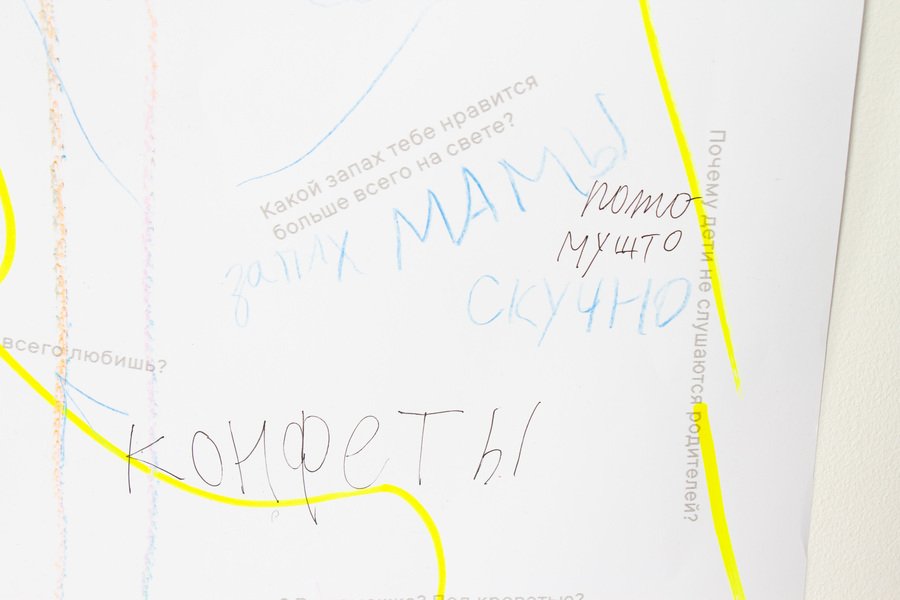 Какой запах тебе нравится
больше всего на свете?
запах МАМЫ
Почему дети не слушаются родителей?
пото
мушто
скучно
всего любишь?
конфеты
Под кроватью?